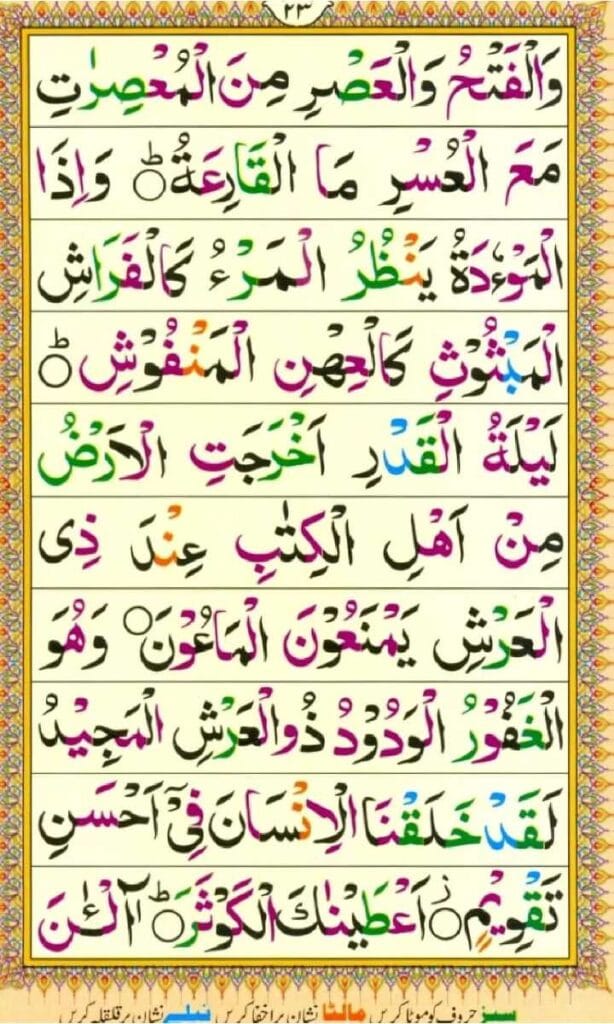 ۲۳
وَالْفَتْحُ وَالْعَصْرِ مِنَ الْمُعْصِرٰتِ
مَعَ الْعُسْرِ مَا الْقَارِعَةُ ؕ وَاِذَا
الْمَوْءٗدَةُ يَنْظُرُ الْمَرْءُ كَالْفَرَاشِ
الْمَبْثُوْثِ كَالْعِهْنِ الْمَنْفُوْشِ ؕ
لَيْلَةُ الْقَدْرِ اَخْرَجَتِ الْاَرْضُ
مِنْ اَهْلِ الْكِتٰبِ عِنْدَ ذِى
الْعَرْشِ يَمْنَعُوْنَ الْمَاعُوْنَ ○ وَهُوَ
الْغَفُوْرُ الْوَدُوْدُ ذُوالْعَرْشِ الْمَجِيْدُ
لَقَدْ خَلَقْنَا الْاِنْسَانَ فِىْۤ اَحْسَنِ
تَقْوِيْمٍ ○ز اَعْطَيْنٰكَ الْكَوْثَرَ ؕ آلْـٰٔنَ
سبز حروف کو موٹا کریں مالٹا نشان پر اخفا کریں نیلے نشان پر قلقلہ کریں